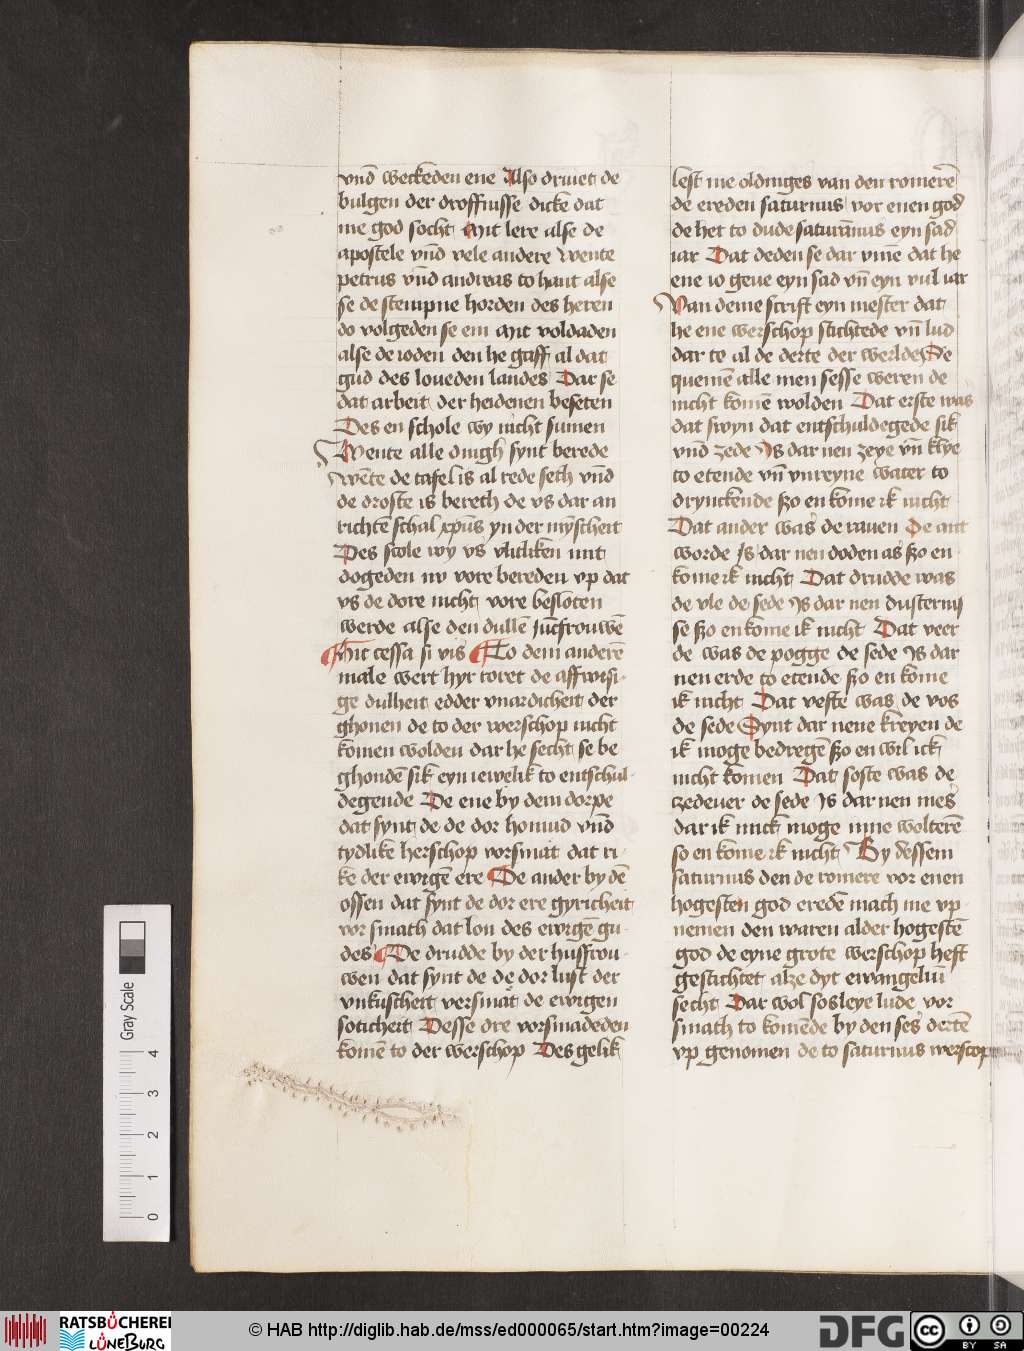 vnd̄ weckeden ene Also driuet de
bulgen der droffnisse dicke dat
me god socht Mit lere alse de
apostele vnd̄ vele andere Wente
petrus vnd̄ andreas to hant alse
se de stempne horden des heren
do volgeden se em Mit woldaden
alse de ioden den he gaff al dat
gud des loueden landes Dar se
dat arbeit der heidenen beseten
Des en schole wy nicht sumen
Wente alle dingh synt berede
wēte de tafel is al rede seth vnd̄
de droste is bereth de vs dar an
richtē schal xp̄us yn der mȳscheit
Des scole wy vs vlitliken mit
dogeden nv vore bereden vp dat
vs de dore nicht vore besloten
werde alse den dullē juncfrouwē
Hic cessa si vis To dem anderē
male wert hyr roret de affwisi-
ge dulheit edder vnardicheit der
ghonen de to der werschop nicht
komen wolden dar he secht se be
ghondē sik eyn iewelik to entschul-
degende De ene by dem dorpe
dat synt de de dor homud vnd̄
tydlike herschop vorsmat dat ri-
ke der ewigē ere De ander by dē
ossen dat synt de dor ere gyricheit
vorsmath dat lon des ewigē gu-
des De drudde by der husfrou-
wen dat synt de de dor lust der
vnkuscheit versmat de ewigen
soticheit Desse dre vorsmadeden
komē to der werschop Des gelik
lest me oldinges van den romerē
de ereden saturnus vor enen god
de het to dude saturn̄nus eyn sad
iar Dat deden se dar vm̄e dat he
ene io geue eyn sad vn̄ eyn vul iar
Van deme scrift eyn mester dat
he ene werschop stichtede vn̄ lud
dar to al de derte der werldes De
quemē alle men sesse weren de
nicht komē wolden Dat erste was
dat swyn dat entschuldegede sik
vnd̄ zede Is dar nen zeye vn̄ klye
to etende vn̄ vnreyne water to
drynckende szo en kome ik nicht
Dat ander was de rauen De ant
worde Is dar nen doden as szo en
kome ik nicht Dat drudde was
de vle de sede Is dar nen dusternis
se szo en kome ik nicht Dat veer
de was de pogge de sede Is dar
nen erde to etende szo en kome
ik nicht Dat vefte was de vos
de sede Synt dar nene kreyen de
ik moge bedregē szo en wil ick
nicht komen Dat soste was de
czedeuer de sede Is dar nen mes
dar ik mick moge inne welterē
so en kome ik nicht By dessem
saturnus den de romere vor enen
hogesten god eredē mach me vp-
nemen den waren alder hogestē
god de eyne grote werschop heft
gestichtet alze dyt ewangeliū
secht Dar wol sosleye lude vor
smath to komēde by den ses dertē
vp genomen de to saturnus werscop
Gray Scale
4
3
2
1
0
RATSBÜCHEREI
LÜNEBURG
© HAB http://diglib.hab.de/mss/ed000065/start.htm?image=00224
DFG
cc
BY SA